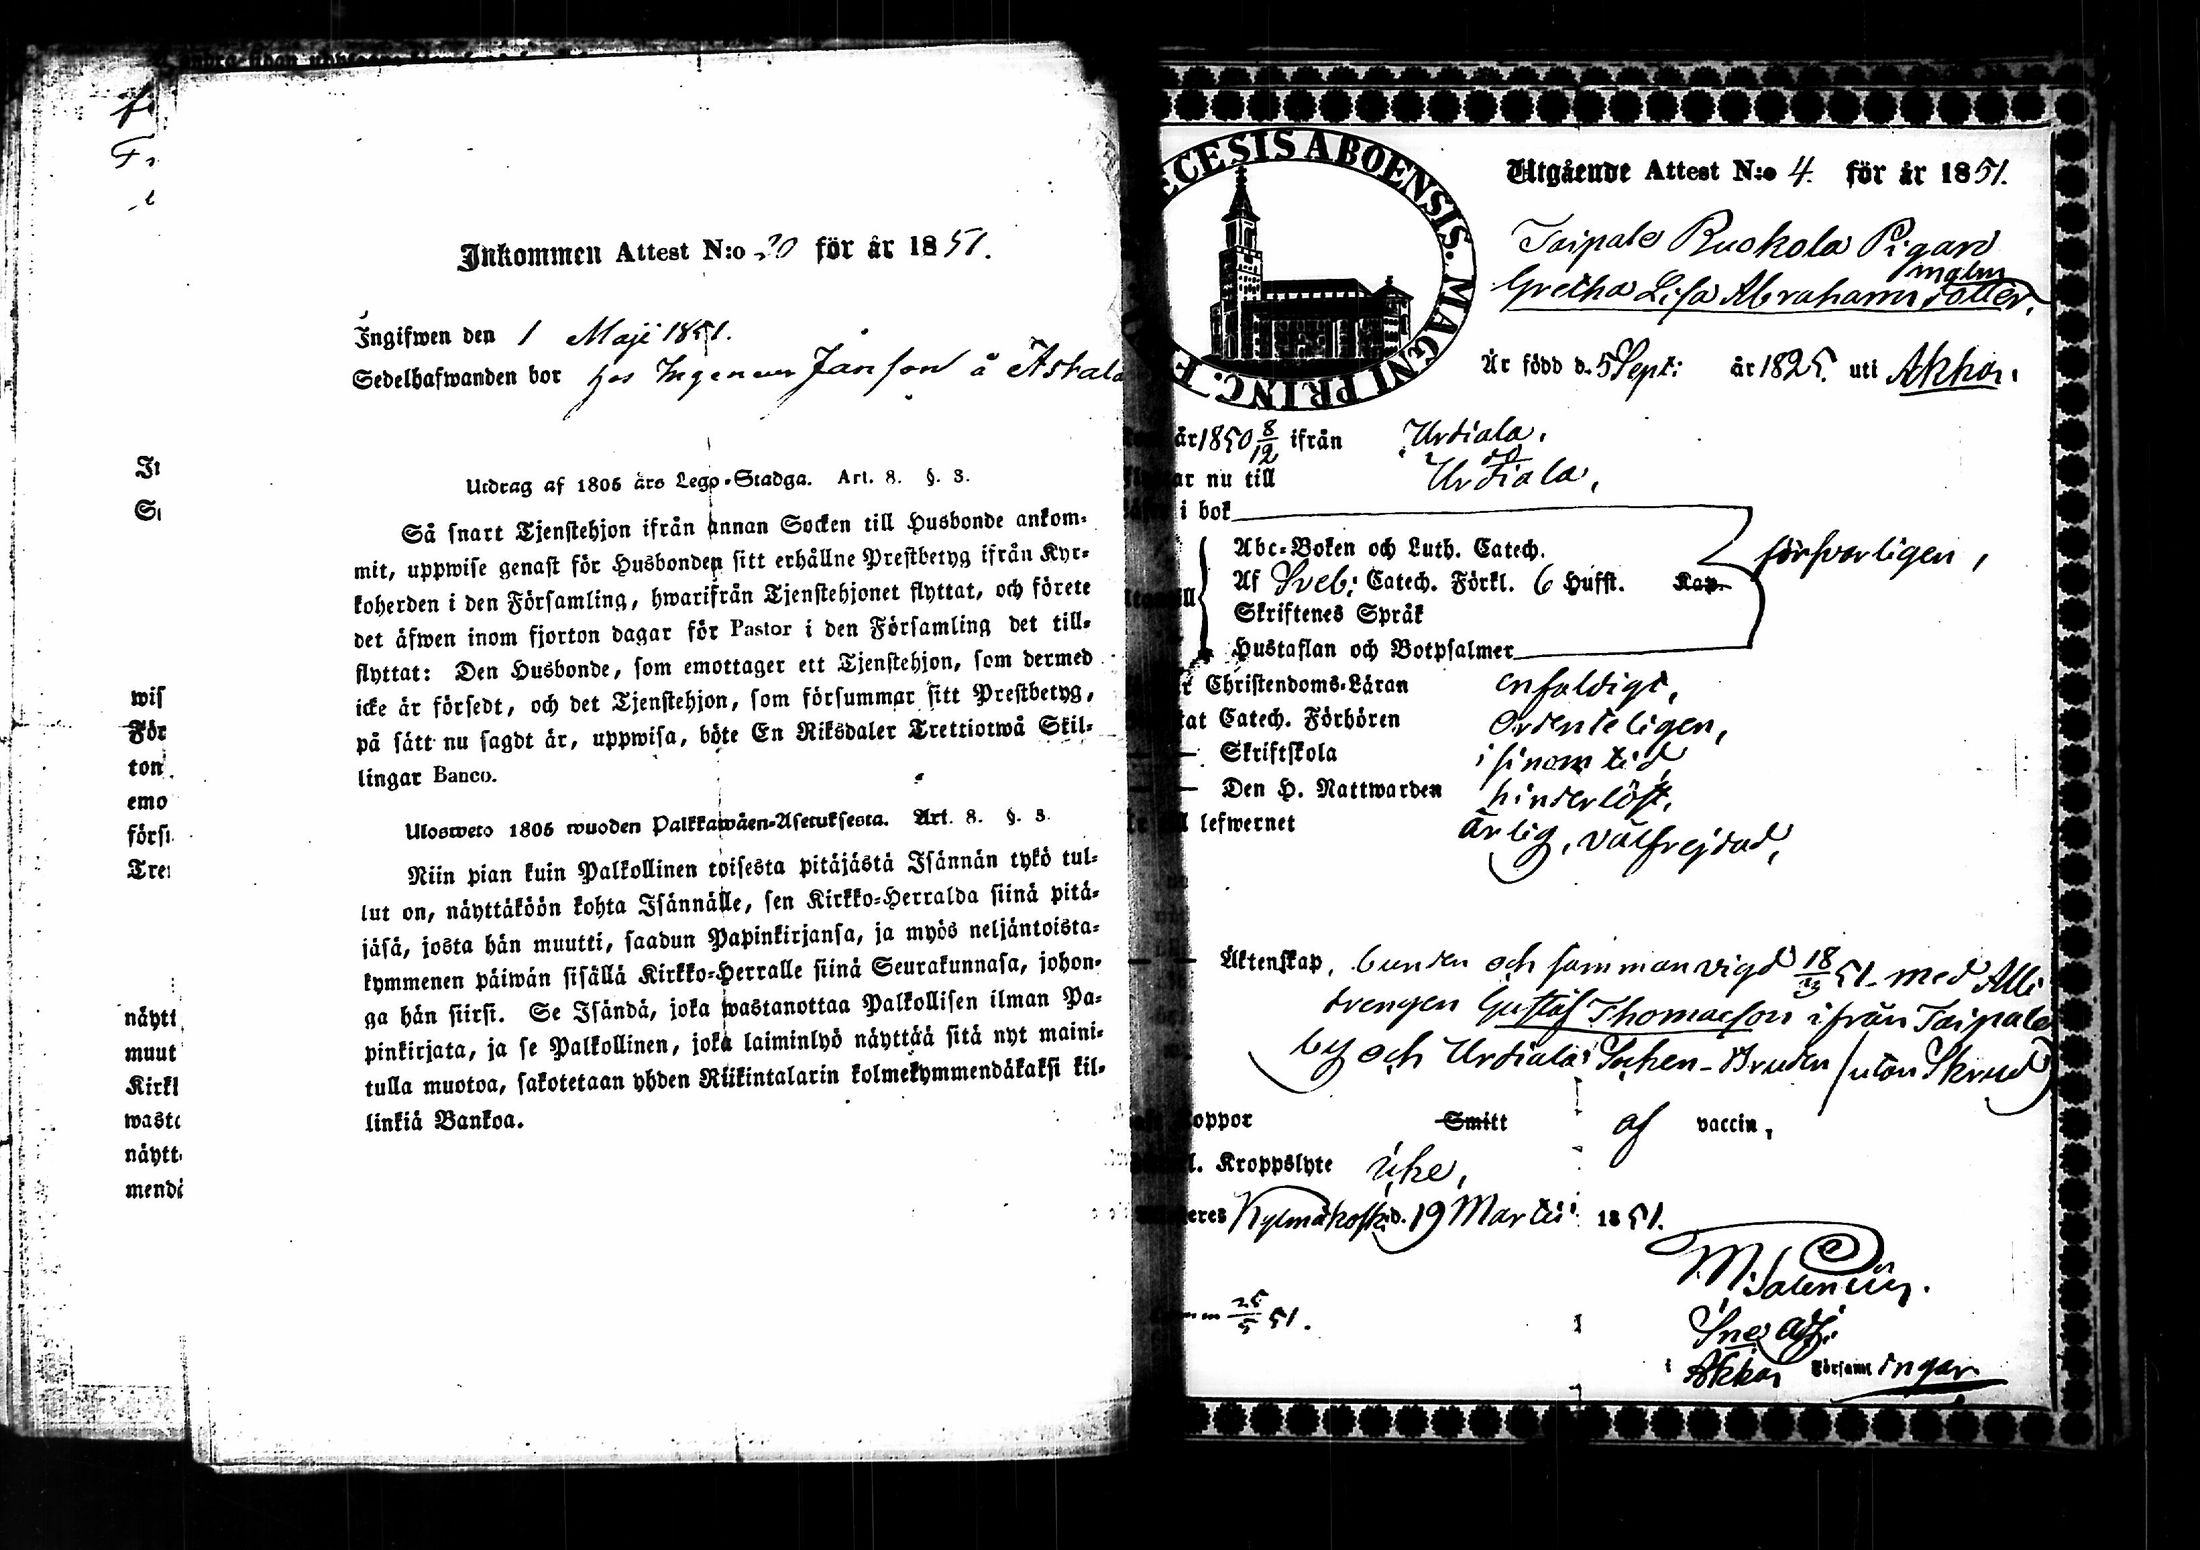 Inkommen Attest N:o 20 för år 1851.
Ingifwen den 1 Maji 1851.
Sedelhafwanden bor hos Ingeneur Janson å Askala
Utdrag af 1805 års Lego-Stadga. Art. 8. §. 3.
Så snart Tjenstehjon ifrån annan Socken till Husbonde ankom-
mit, uppwise genast för Husbonden sitt erhållne Prestbetyg ifrån Kyr-
koherden i den Församling, hwarifrån Tjenstehjonet flyttat, och förete
det äfwen inom fjorton dagar för Pastor i den Församling det till-
flyttat: Den Husbonde, som emottager ett Tjenstehjon, som dermed
icke är försedt, och det Tjenstehjon, som försummar sitt Prestbetyg,
på sätt nu sagdt är, uppwisa, böte En Riksdaler Trettiotwå Skil-
lingar Banco.
Ulosweto 1805 wuoden Palkkawäen-Asetuksesta. Art. 8. §. 3.
Niin pian kuin Palkollinen toisesta pitäjästä Isännän tykö tul-
lut on, näyttäköön kohta Isännälle, sen Kirkko-Herralda siinä pitä-
jäsä, josta hän muutti, saadun Papinkirjansa, ja myös neljäntoista-
kymmenen päiwän sisällä Kirkko-Herralle siinä Seurakunnasa, johon-
ga hän siirsi. Se Isändä, joka wastanottaa Palkollisen ilman Pa-
pinkirjata, ja se Palkollinen, joka laiminlyö näyttää sitä nyt maini-
tulla muotoa, sakotetaan yhden Riikintalarin kolmekymmendäkaksi kil-
linkiä Bankoa.
wis
För
ton
emo
förs
Tre
näytt
muut
Kirkl
wast
näytt
mendä
ECESIS ABOENSIS. MAGNI PRINC. F
Utgående Attest N:o 4. för år 1851.
Taipale Ruokola Pigan
malm
Gretha Lisa Abrahamsdotter.
Är född d. 5 Sept: år 1825. uti Akkas.
år 1850 8/12 ifrån Urdiala.
ar nu till Urdiala,
i bok
Abc-Boken och Luth. Catech. försvarligen,
Af Sveb: Catech. Förkl. 6 Hufst. Kap.
Skriftenes Språk
Hustaflan och Botpsalmer
Christendoms-Läran enfaldigt,
tat Catech. Förhören ordenteligen,
Skriftskola i sinom tid
Den H. Nattwarden hinderlöst,
lefwernet ärlig, välfrejdad,
Äktenskap, bunden och sammanvigd 18/3 51. med
drengen Gustaf Thomasson ifrån Taipale
by och Urdiala Socken-Bruden (utan Skrud)
oppor Smitt af vaccin,
l. Kroppslyte icke,
eres Kylmäkoski d. 19 Martii 1851.
M. Salenius.
25/5 51.
Sne adj.
i Akkas Församlingar